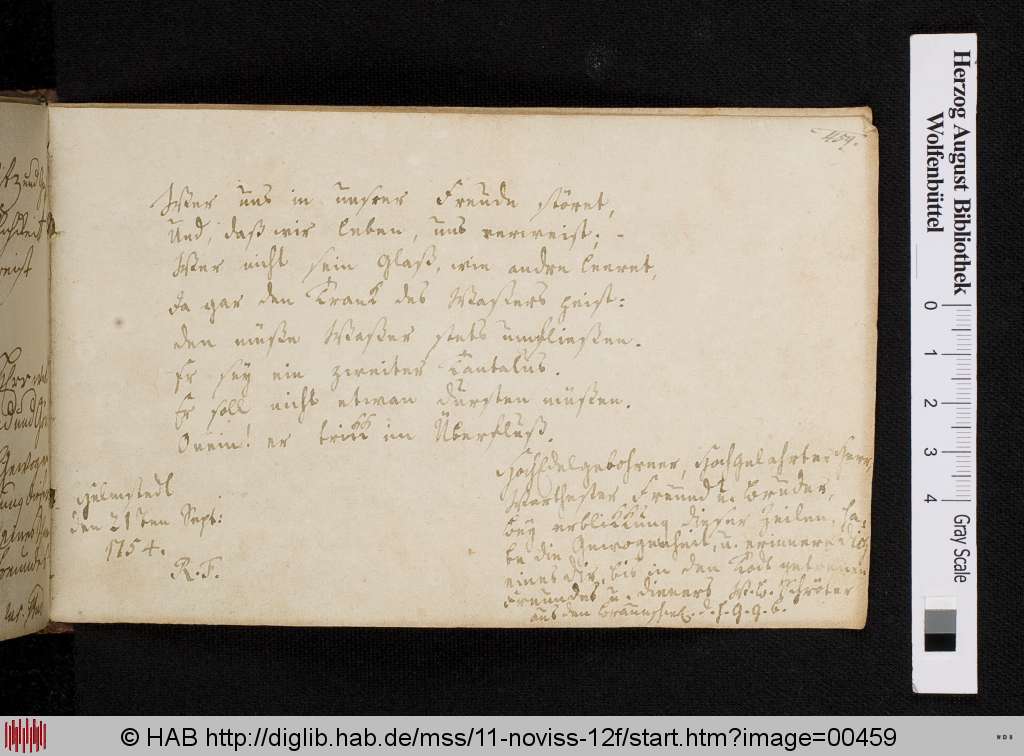 459.
Wer uns in unsrer Freude störet,
Und, daß wir leben, uns verweist; -
Wer nicht sein Glaß, wie andre leeret,
Ja gar den Tranck des Waßers heist:
den müße Waßer stets umfließen.
Er sey ein zweiter Tantalus.
Er soll nicht etwan dursten müßen.
O nein! er trikk im Überfluß.
Helmstedt
den 21sten Sept:
1754.
R. F.
HochEdelgebohrner, Hochgelehrter Herr,
Werthester Freund u. Bruder,
bey erblikkung dieser Zeilen, ha-
be die Gewogenheit, u. erinnere dich
eines dir, bis in den Todt getreuen
Freundes u. dieners Schröter
aus dem
Herzog August Bibliothek
Wolfenbüttel
0 1 2 3 4
Gray Scale
© HAB http://diglib.hab.de/mss/11-noviss-12f/start.htm?image=00459